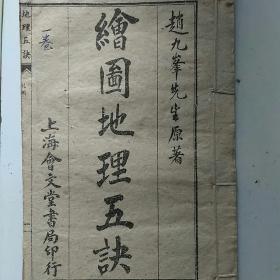 趙九峯先生原著
繪圖地理五訣
一卷
上海會文堂書局印行
地理五訣